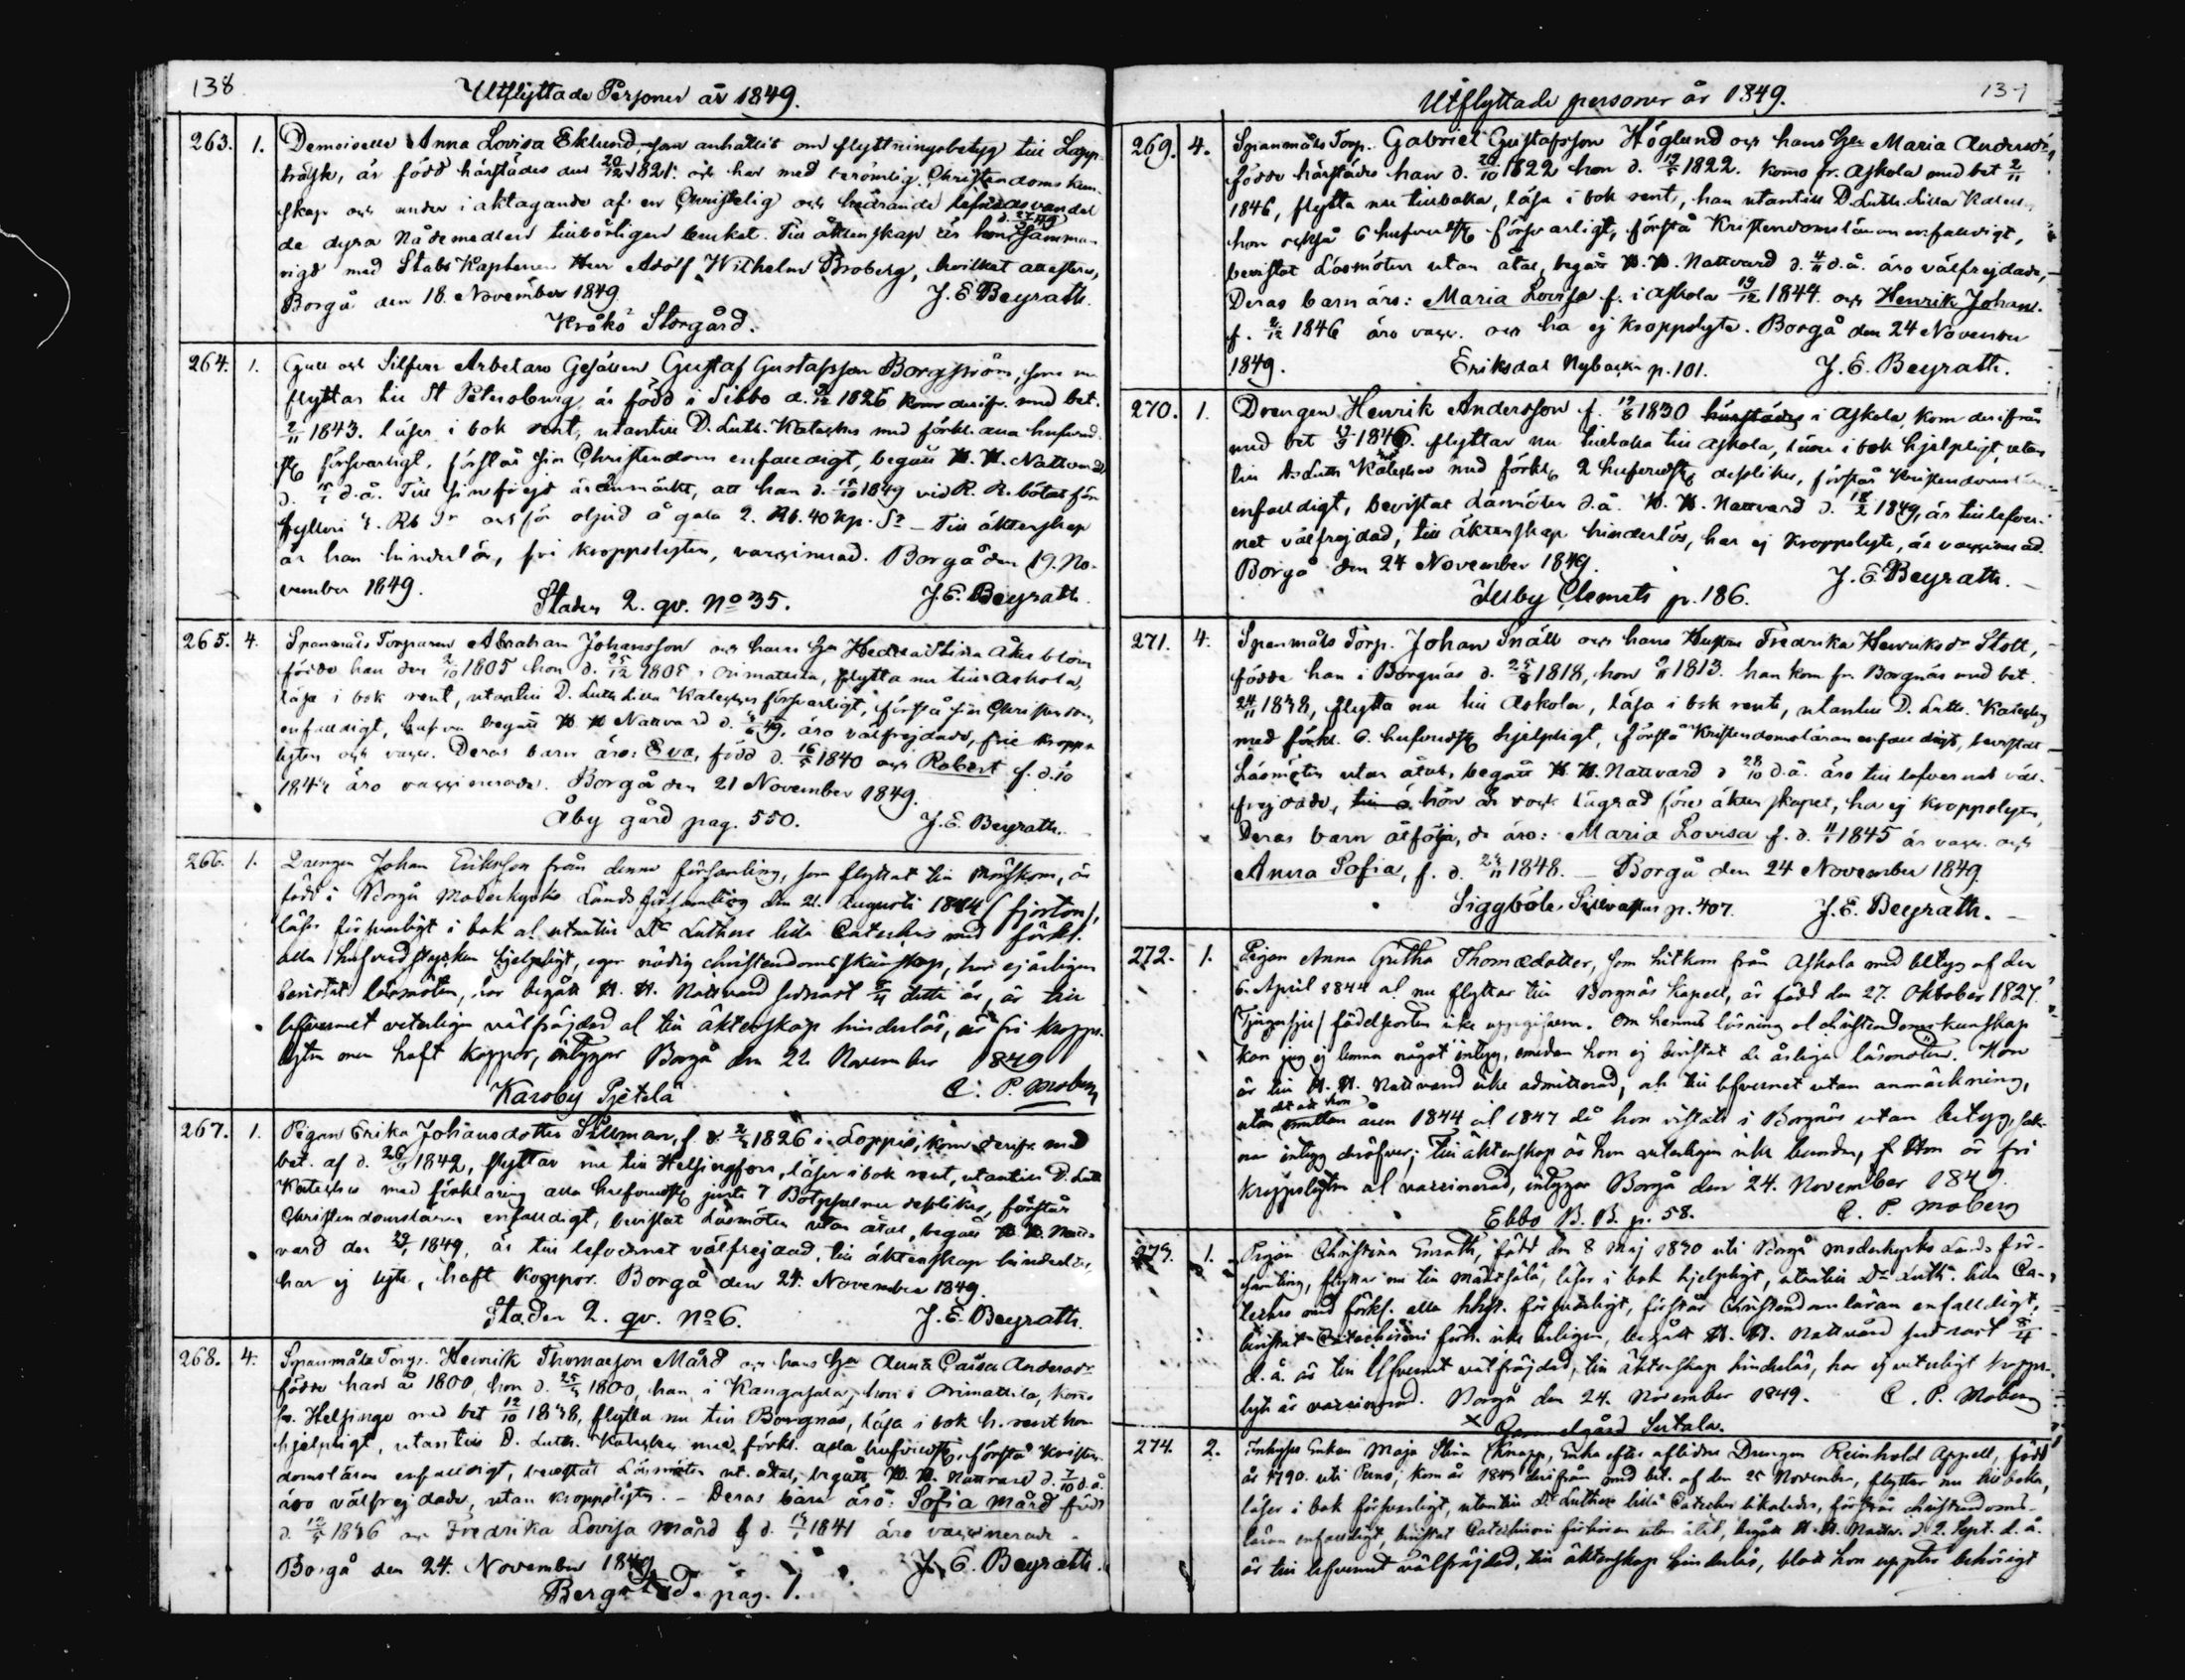 138
Utflyttade Personer år 1849.
263. 1. Demoiselle Anna Lovisa Eklund, som anhållit om flyttningsbetyg till Lapp-
träsk, är född härstädes den 20/12 1821. och har med berömlig Christendoms kun-
skap och under iakttagande af en Christelig och hedrande lefnads vandel
de dyra Nådemedlen tillbörligen brukat. Till äktenskap är hon d. 27/ 49 samma-
vigd med Stabs Kaptenen Herr Adolf Wilhelm Broberg, hvilket attesteras,
Borgå den 18. November 1849. J. E. Beyrath.
Kråkö Storgård.
264. 1. Gull och Silfver Arbetare Gesällen Gustaf Gustafsson Borgström, som nu
flyttar till St Petersburg, är född i Sibbo d. /12 1826 kom derifr. med bet.
2/11 1843. läser i bok rent, utantill D. Luth. Kateches med förkl. alla hufvud-
st. försvarligt, förstår sin Christendom enfaldigt, begått H. H. Nattvard
d. d. å. Till sin frejd är anmärkt, att han d. /10 1849 vid R. R. bötat för
fylleri Rb Sr och för oljud å gata 2. Rb. 40 kp. Sr - Till äktenskap
är han hinderlös, fri kroppslyten, vaccinerad. Borgå den 19. No-
vember 1849. J. E. Beyrath.
Staden 2. qv. No 35.
265. 4. Spanmåls Torparen Abraham Johansson och hans Hu Hedda Stina Åkerblom
födde han den 2/10 1805 hon d. 25/12 1805 i Orimattila, flytta nu till Askola,
läsa i bok rent, utantill D. Luth. Lilla Kateches försvarligt, förstå sin Christendom
enfaldigt, hafva begått H. H. Nattvard d. 49, äro välfrejdade, frie kropps
lyten och vacc. Deras barn äro: Eva, född d. 16/5 1840 och Robert f. d. /10
184 äro vaccinerade. Borgå den 21 November 1849.
Åby gård pag. 550. J. E. Beyrath.
266. 1. Drengen Johan Eriksson från denna församling, som flyttat till Mörskom, är
född i Borgå Moderkyrko Lands församling den 21. Augusti 1814 (fjorton),
läser försvarligt i bok al utantill Dr Luthers lilla Cateches med förkl.
alla hufvudstycken hjelpligt, eger nödig christendomskunskap, har ej årligen
bevistat läsmöten, har begått H. H. Nattvard sednast detta år, är till
lefvernet veterligen välfräjdad al till äktenskap hinderlös, är fri kropps-
lyten men haft koppor, intygar Borgå den 22. November 1849
Karsby Pjetilä C. P. Moberg
267. 1. Pigan Erika Johansdotter Stillman, f. d. 1826 i Loppis, kom derifr. med
bet. af d. 26/ 1842, flyttar nu till Helsingfors, läser i bok rent, utantill D. Luth
Kateches med förklaring alla hufvudst. jemte 7 Botpsalmer desslikes, förstår
Christendomsläran enfaldigt, bevistat Läsmöten utan åtal, begått H. H. Natt-
vard den 29/ 1849, är till lefvernet välfrejdad, till äktenskap hinderlös,
har ej lyte, haft koppor. Borgå den 24. November 1849.
Staden 2. qv. No 6. J. E. Beyrath.
268. 4. Spanmåls Torp. Henrik Thomasson Mård och hans Hu Anna Caisa Andersdr
födde han år 1800, hon d. 25/ 1800, han i Kangasala, hon i Orimattila, komo
fr. Helsinge med bet 12/10 1838, flytta nu till Borgnäs, läsa i bok h. rent hon
hjelpligt, utantill D. Luth. Kateches med förkl. alla hufvudst., förstå Kristen-
domsläran enfaldigt, bevistat Läsmöten ut. åtal, begått H. H. Nattvard d. 7/10 d. å.
äro välfrejdade, utan kroppslyten. - Deras barn äro: Sofia Mård född
d. 12/5 1836 och Fredrika Lovisa Mård f. d. 1841 äro vaccinerade.
Borgå den 24. November 1849. J. E. Beyrath.
Bergstad. pag. 1.
Utflyttade personer år 1849.
139
269. 4. Spanmåls Torp. Gabriel Gustafsson Höglund och hans Hu Maria Andersdr,
födde härstädes han d. 20/10 1822 hon d. 19/5 1822. komo fr. Askola med bet 2/11
1846, flytta nu tillbaka, läsa i bok rent, han utantill D. Luth. Lilla Kateches
hon också 6 hufvudst. försvarligt, förstå Kristendomsläran enfaldigt,
bevistat Läsmöten utan åtal, begått H. H. Nattvard d. 4/11 d. å. äro välfrejdade,
Deras barn äro: Maria Lovisa f. i Askola 19/12 1844 och Henrik Johan.
f. 2/12 1846 äro vacc. och ha ej kroppslyte. Borgå den 24 November
1849. Eriksdal Nybacka p. 101. J. E. Beyrath.
270. 1. Drengen Henrik Andersson f. 19/8 1830 härstädes i Askola, kom derifrån
med bet 1846. flyttar nu tillbaka till Askola, läser i bok hjelpligt, utan-
till D. Luth Kateches med förkl. 2 hufvudst. desslikes, förstår Kristendomsläran
enfaldigt, bevistat Läsmöten d. å. H. H. Nattvard d. 18/2 1849, är till lefver-
net välfrejdad, till äktenskap hinderlös, har ej kroppslyte, är vaccinerad.
Borgå den 24 November 1849. J. E. Beyrath.
Illby Clemets p. 186.
271. 4. Spanmåls Torp. Johan Snäll och hans Hustru Fredrika Henriksdr Stolt,
födde han i Borgnäs d. 25/8 1818, hon 9/11 1813. han kom fr. Borgnäs med bet.
24/11 1838, flytta nu till Askola, läsa i bok rent, utantill D. Luth. Kateches
med förkl. 6. hufvudst. hjelpligt, förstå Kristendomsläran enfaldigt, bevistat
Läsmöten utan åtal, begått H. H. Nattvard d 28/10 d. å. äro till lefvernet väl-
frejdade, hon är dock lägrad före äktenskapet, ha ej kroppslyten,
Deras barn åtfölja, de äro: Maria Lovisa f. d. 1845 är vacc. och
Anna Sofia, f. d. 24/11 1848. - Borgå den 24 November 1849.
Siggböle p. 407. J. E. Beyrath.
272. 1. Pigan Anna Gretha Thomædotter, som hitkom från Askola med betyg af den
6. April 1844 al nu flyttar till Borgnäs Kapell, är född den 27. Oktober 1827.
(tjugusju) födelseorten icke uppgifven. Om hennes läsning al christendomskunskap
kan jag ej lemna något intyg, emedan hon ej bevistat de årliga läsmöten. Hon
är till H. H. Nattvard icke admitterad, al till lefvernet utan anmärkning,
utom det att hon emellan åren 1844 al 1847 då hon vistats i Borgnäs utan betyg, sak-
nar intyg deröfver; till äktenskap är hon veterligen icke bunden, Hon är fri
kroppslyten al vaccinerad, intygar Borgå den 24. November 1849.
Ebbo B. B. p. 58. C. P. Moberg
273. 1. Pigan Christina Enroth, född den 8 Maj 1830 uti Borgå moderkyrko Lands för-
samling, flyttar nu till Mäntsälä, läser i bok hjelpligt, utantill Dr Luth. lilla Ca-
teches med förkl. alla hhst. försvarligt, förstår Christendomsläran enfaldigt,
bevistat Catechismi förh. icke årligen, begått H. H. Nattvard sednast
d. å. är till lefvernet välfräjdad, till äktenskap hinderlös, har ej veterligt kropps-
lyte är vaccinerad. Borgå den 24. November 1849. C. P. Moberg
x Gammelgård Suttala.
274. 2. Inhyses Enkan Maja Stina Knapp, Enka efter aflidne Drengen Reinhold Appell, född
år 1790. uti Perno, kom år 1845 derifrån med bet. af den 25 November, flyttar nu tillbaka,
läser i bok försvarligt, utantill Dr Luthers lilla Cateches likaledes, förstår christendoms-
läran enfaldigt, bevistat Catechismi förhören utan åtal, begått H. H. Nattv. d. 2. Sept. d. å.
är till lefvernet välfräjdad, till äktenskap hinderlös, blott hon uppter behörigt